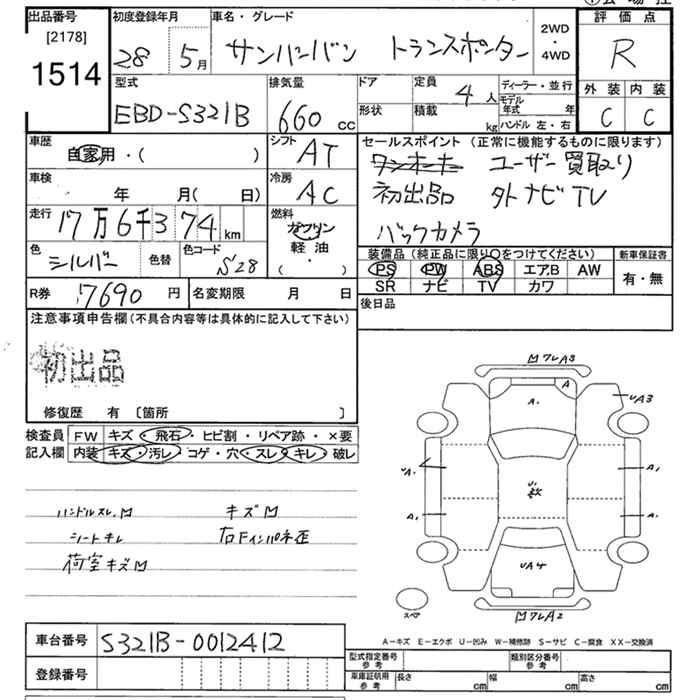 出品番号
[2178]
1514
初度登録年月
28 5月
車名・グレード
サンバーバン トランスポーター
2WD
・
4WD
評価点
R
型式
EBD-S321B
排気量
660 cc
ドア
形状
定員
4人
積載
kg
ディーラー・並行
モデル年式 年
ハンドル 左・右
外装 内装
C C
車歴
自家用・( )
シフト
AT
車検
年 月( 日)
冷房
AC
走行
17万6千374km
燃料
ガソリン
軽油
・( )
色
シルバー
色替
色コード
S28
セールスポイント (正常に機能するものに限ります)
ワンオーナー ユーザー買取り
初出品 外ナビTV
バックカメラ
装備品(純正品に限り〇をつけてください)
新車保証書
PS PW ABS エアB AW
SR ナビ TV カワ
有・無
R券 17690円
名変期限 月 日
後日品
注意事項申告欄(不具合内容等は具体的に記入して下さい)
初出品
修復歴 有 〔箇所 〕
検査員
記入欄
FW キズ・飛石・ヒビ割・リペア跡・×要
内装 キズ・汚レ・コゲ・穴・スレ・キレ・破レ
ハンドルスレ M キズ M
シートキレ 右Fインパネ歪
荷室キズ M
M ワレA3
A
A.
UA3
UA.
A,
A,
A.
UA4
M ワレA2
スペア
車台番号 S321B-0012412
登録番号
A-キズ E-エクボ U-凹み W-補修跡 S-サビ C-腐食 XX-交換済
型式指定番号
参考
類別区分番号
参考
車庫証明用
参考
長さ cm 幅 cm 高さ cm